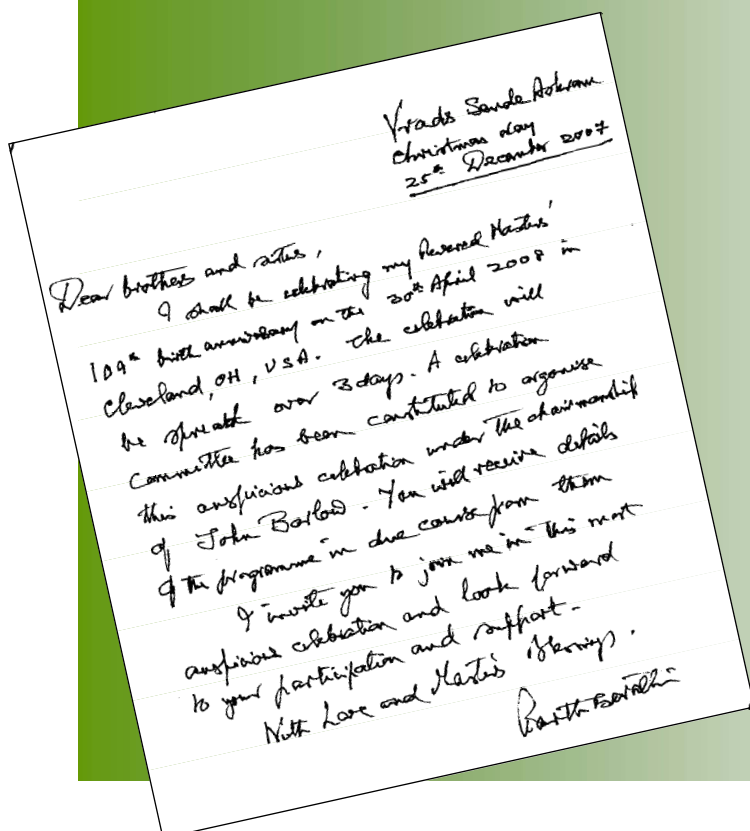 Vrads Sande Ashram
Christmas day
25th December 2007
Dear brothers and sisters,
I shall be celebrating my Revered Masters'
109th birth anniversary on the 30th April 2008 in
Cleveland, OH, USA. The celebration will
be spread over 3 days. A celebration
Committee has been constituted to organise
this auspicious celebration under the chairmanship
of John Barlow. You will receive details
of the programme in due course from them
I invite you to join me in this most
auspicious celebration and look forward
to your participation and support.
With Love and Master's Blessings.